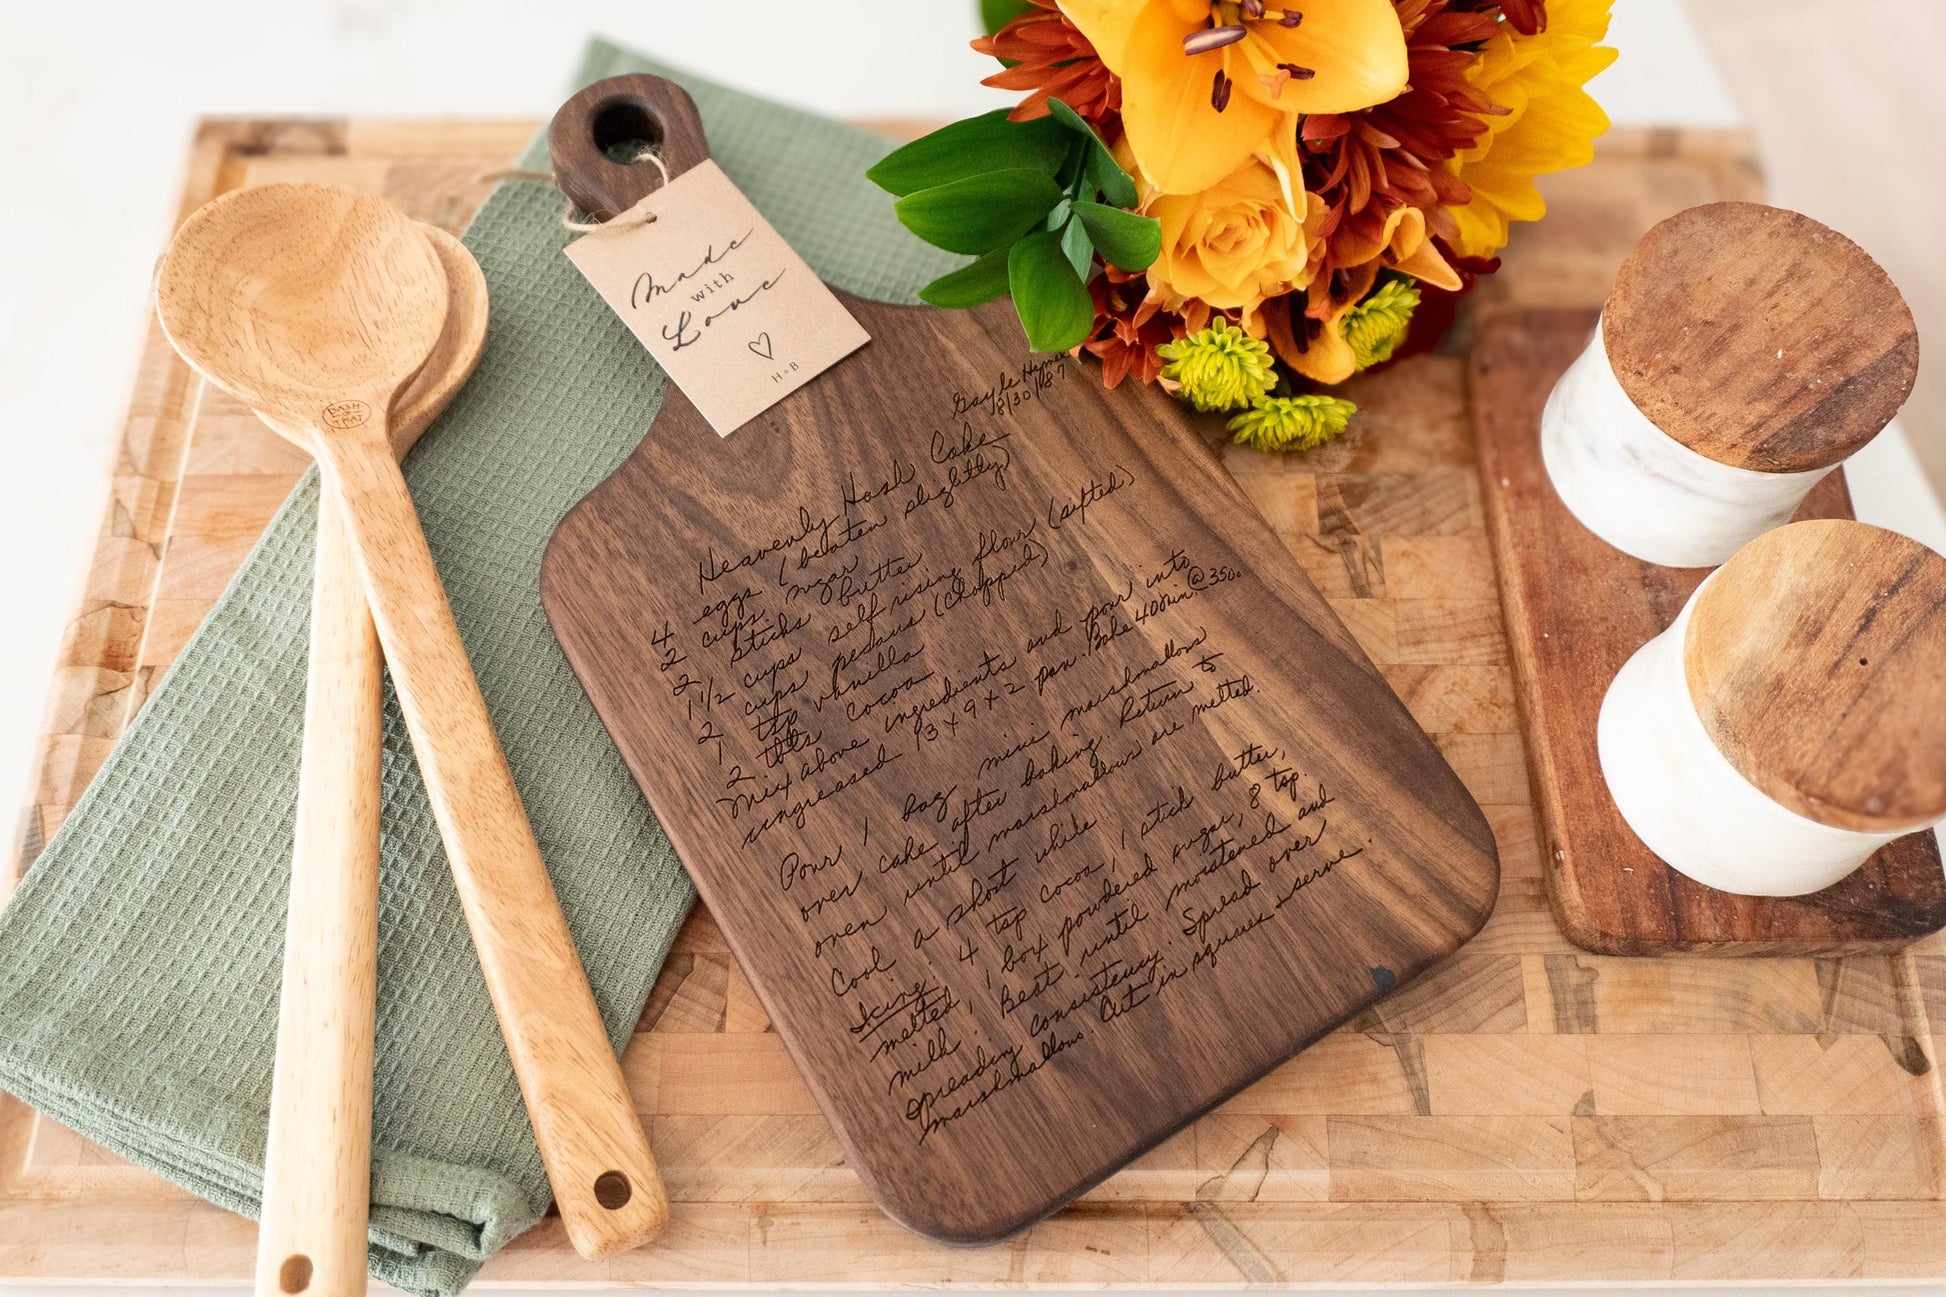 Made
with
Love
H + B
DASH
OF
THAT
Gayle Hymer
8/30/87
Heavenly Hash Cake
4 eggs (beaten slightly)
2 cups sugar
2 sticks butter
1 1/2 cups self rising flour (sifted)
2 cups pecans (chopped)
1 tsp vanilla
2 tbls cocoa
Mix above ingredients and pour into
ungreased 13 x 9 x 2 pan. Bake 40 min. @ 350°
Pour 1 bag mini marshmallows
over cake after baking. Return to
oven until marshmallows are melted.
Cool a short while
Icing: 4 tsp cocoa, 1 stick butter,
melted, 1 box powdered sugar, 8 tsp.
milk. Beat until moistened and
spreading consistency. Spread over
marshmallows. Cut in squares & serve.